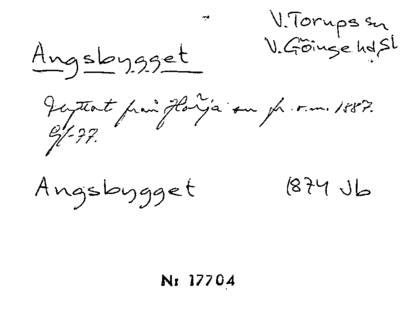 V. Torups sn
V. Göinge hd, Sl
Angsbygget
Flyttat från Florja sn fr. o. m. 1887.
Gf-77.
Angsbygget 1874 Jb
Nr 17704